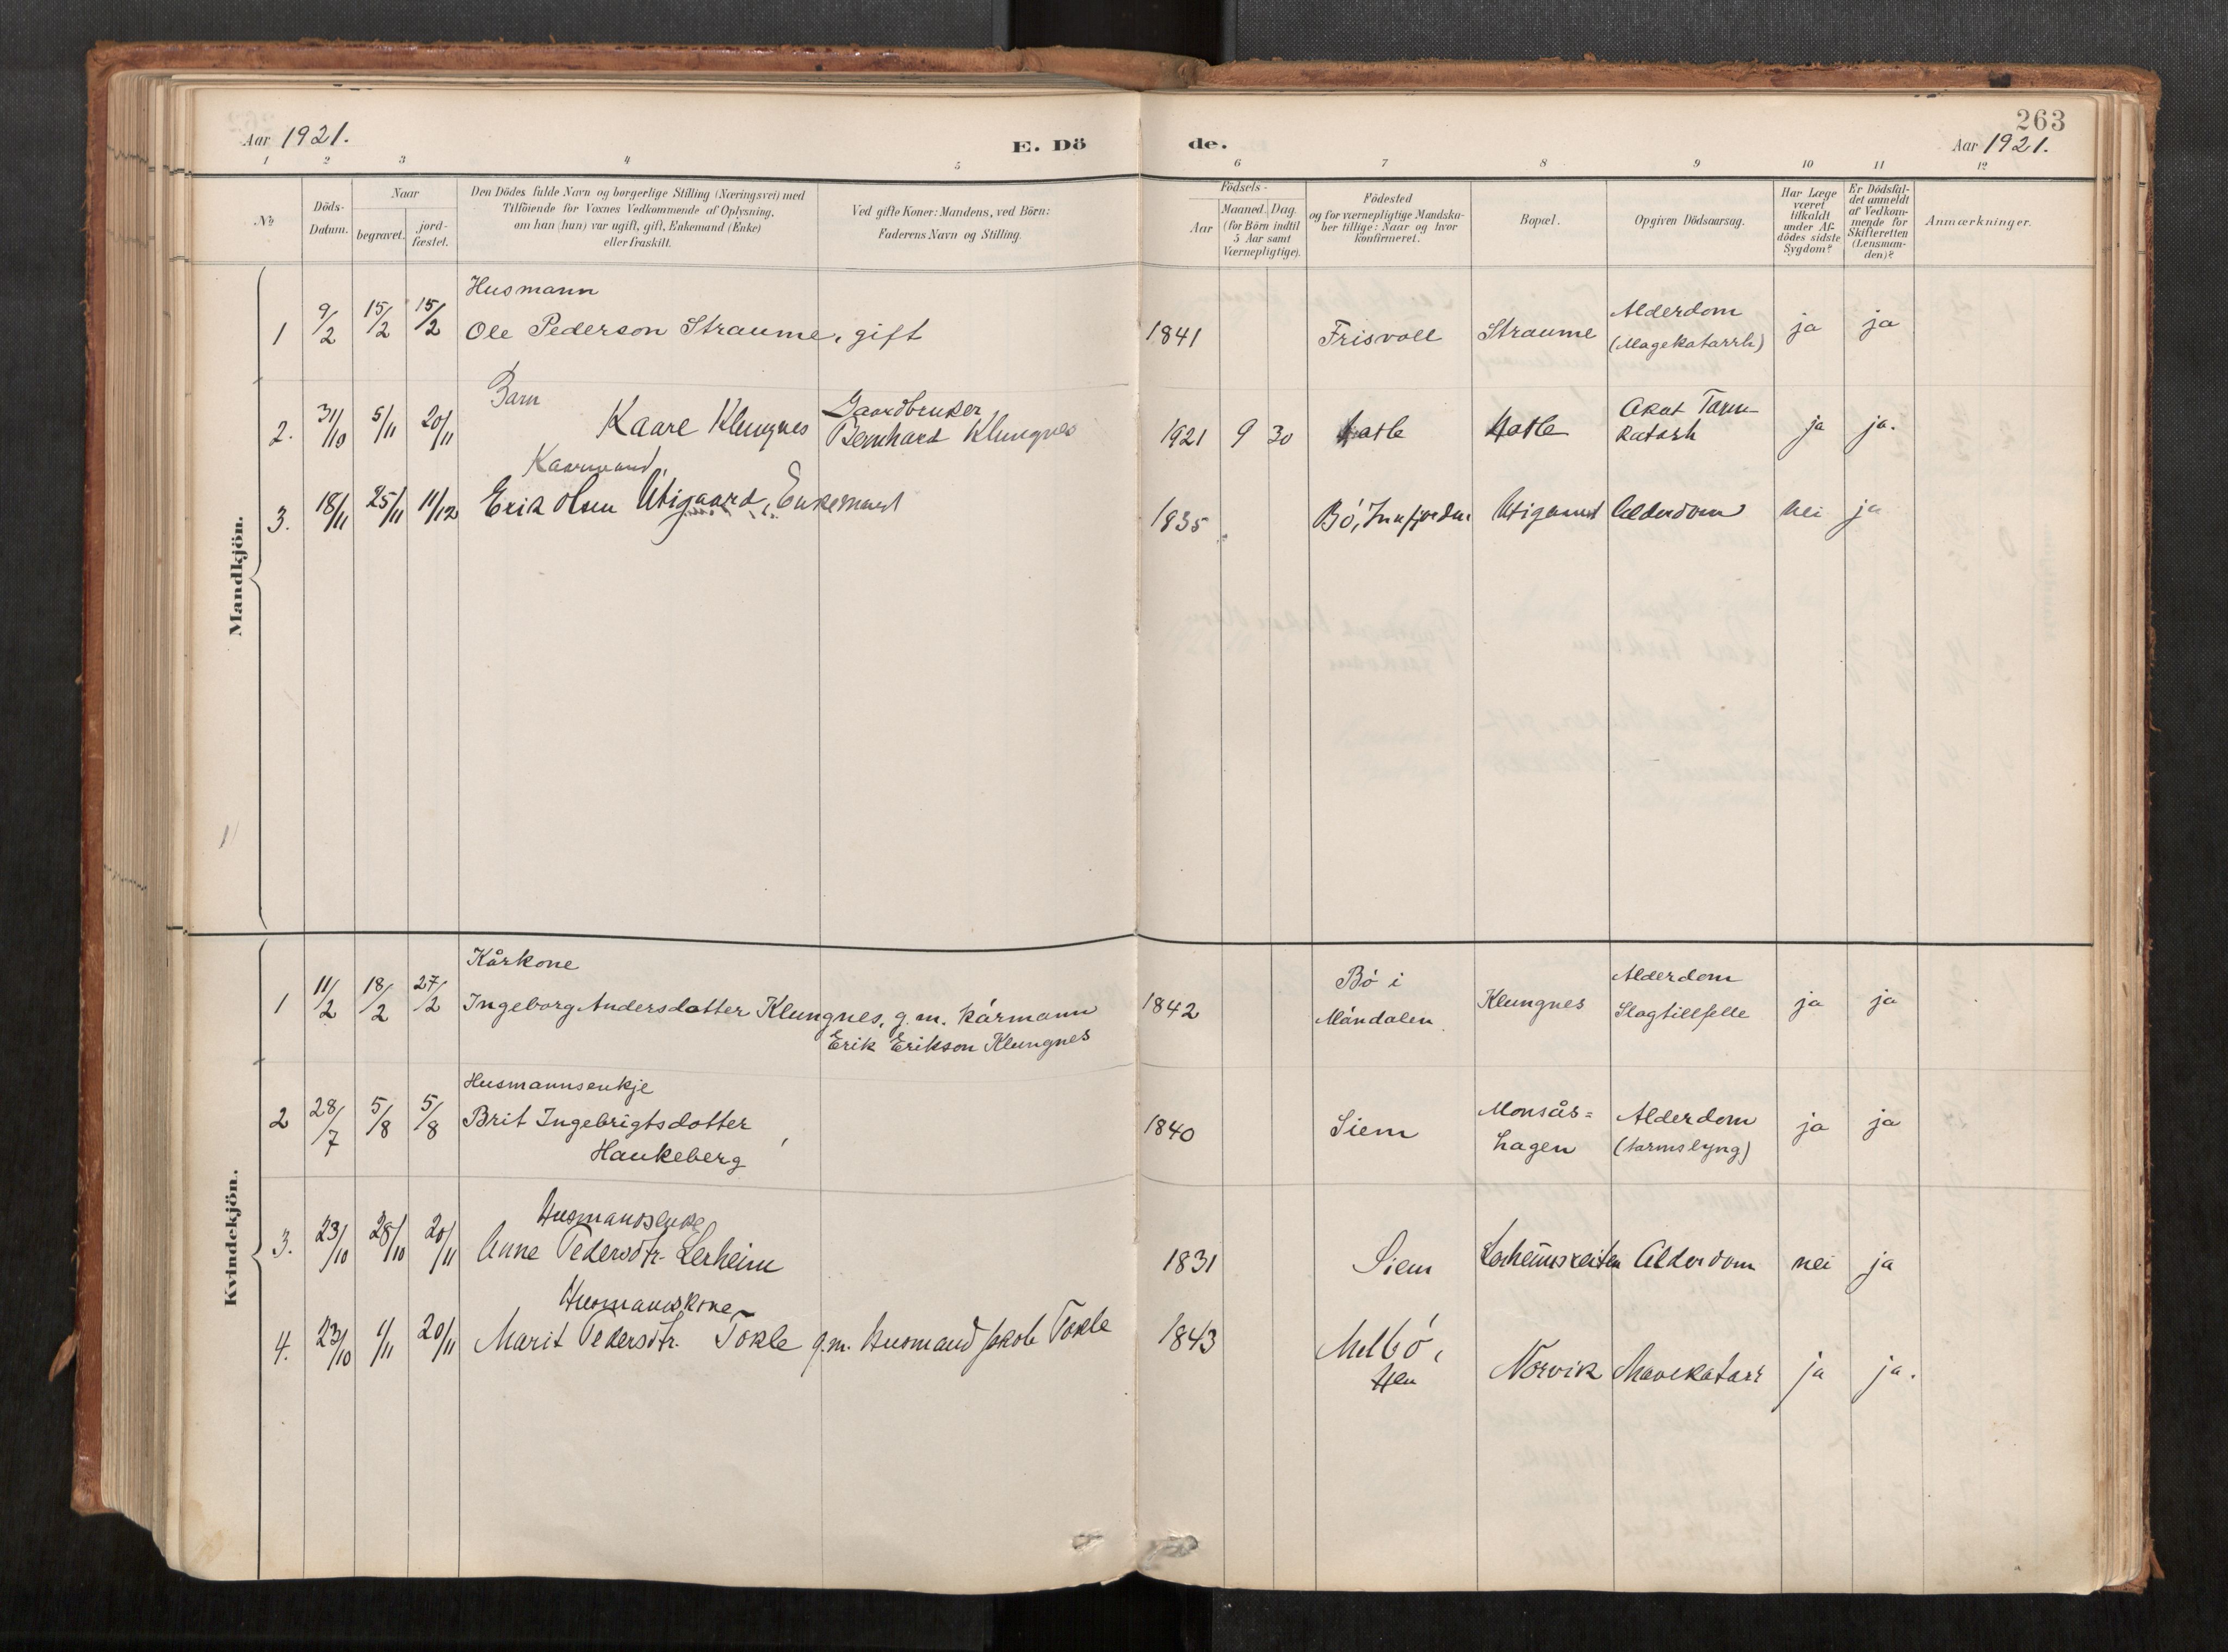 263
Aar 1921.
E. Dö
de.
Aar 1921.
1 2 3 4 5 6 7 8 9 10 11 12
№
Döds-Datum.
Naar
begravet.
jord-fæstet.
Den Dödes fulde Navn og borgerlige Stilling (Næringsvei) med
Tilföiende for Voxnes Vedkommende af Oplysning,
om han (hun) var ugift, gift, Enkemand (Enke)
eller fraskilt.
Ved gifte Koner: Mandens, ved Börn:
Faderens Navn og Stilling.
Födsels-
Aar
Maaned. Dag.
(for Börn indtil
5 Aar samt
Værnepligtige).
Födested
og for værnepligtige Mandska-
ber tillige: Naar og hvor
konfirmeret.
Bopæl.
Opgiven Dödsaarsag.
Har Læge
været
tilkaldt
under Af-
dödes sidste
Sygdom?
Er Dödsfal-
det anmeldt
af Vedkom-
mende for
Skifteretten
(Lensman-
den)?
Anmærkninger.
Mandkjön.
Husmann
1 9/2 15/2 15/2 Ole Pederson Straume, gift 1841 Frisvoll Straume Alderdom (Magekatarrh) ja ja
Barn
2. 31/10 5/11 20/11 Kaare Klungnes Gaardbruker Bernhard Klungnes 1921 9 30 Hatle Hatle Akut Tarm-katarh ja ja.
Kaarmand,
3. 18/11 25/11 11/12 Erik Olsen Utigaard, Enkemand 1835 Bö, Innfjorden Utigaard Alderdom nei ja
Kvindekjön.
Kårkone
1 11/2 18/2 27/2 Ingeborg Andersdotter Klungnes, g.m. kårmann 1842 Bö i Måndalen Klungnes Alderdom Slagtillfelle ja ja
Erik Erikson Klungnes
Husmannsenkje
2 28/7 5/8 5/8 Brit Ingebrigtsdotter 1840 Siem Monsås=hagen Alderdom (tarmslyng) ja ja
Haukeberg
Husmandsenke
3. 23/10 28/10 20/11 Anne Pedersdtr. Lerheim 1831 Siem Lerheimsreiten Alderdom nei ja
Husmandskone
4. 23/10 1/11 20/11 Marit Pedersdtr. Tokle g.m. Husmand Jakob Tokle 1843 Melbö, Hen Norvik Mavekatarr ja ja.